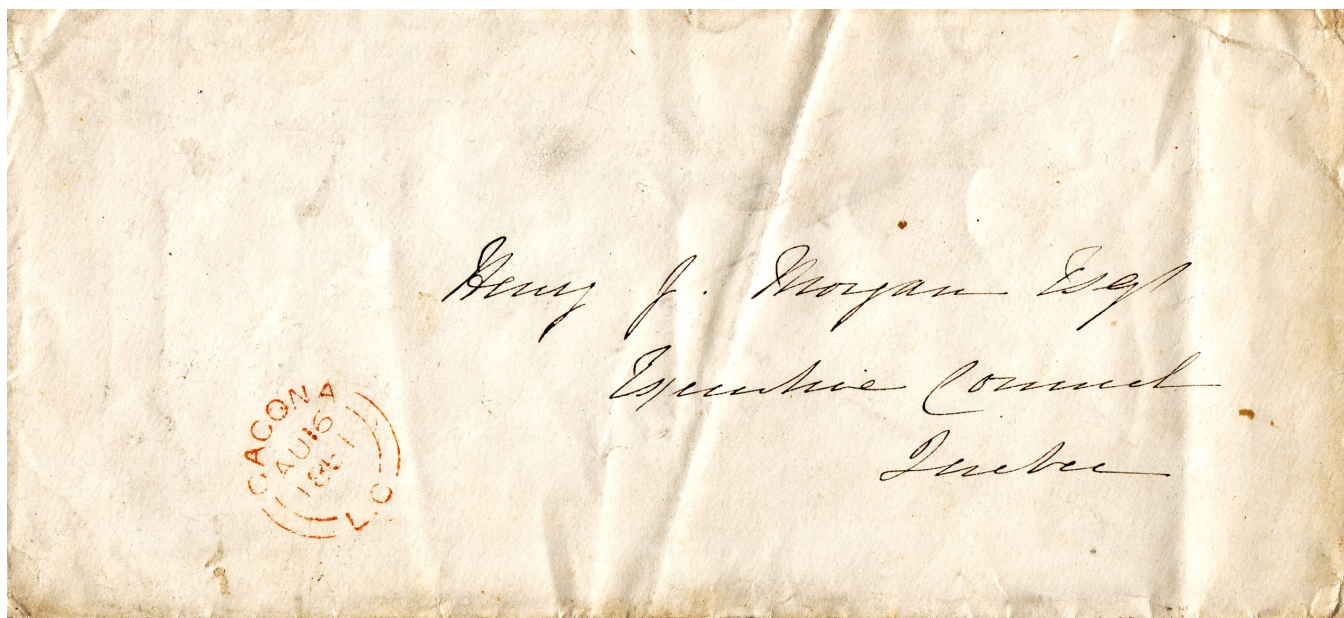 Henry J. Morgan Esqr
Executive Council
Quebec
CACONA
AU 16
L.C